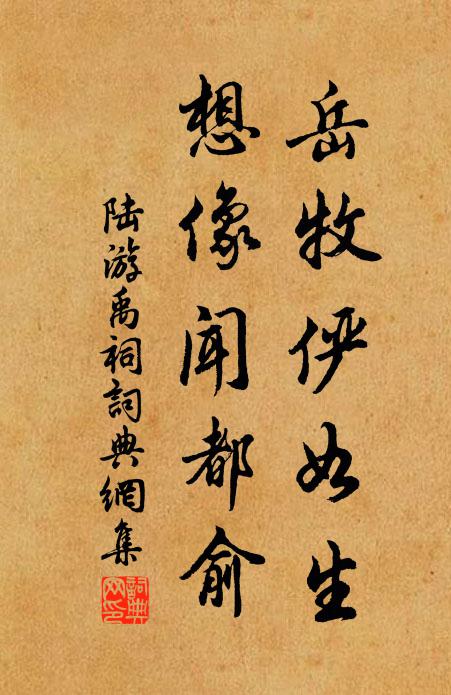 岳牧俨如生
想像闻都俞
陆游禹祠詞典網集
詞典网印